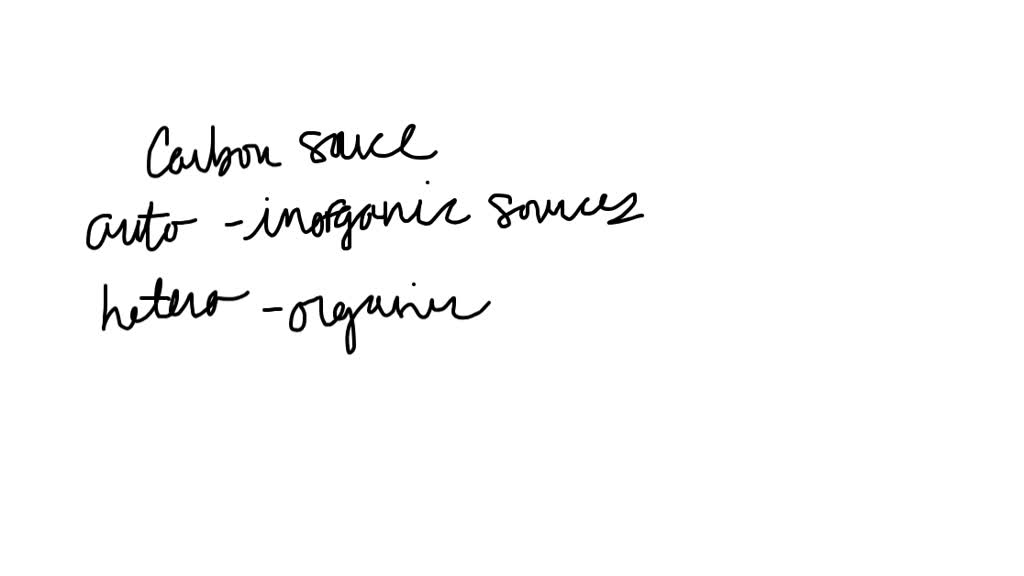 Carbon source
auto - inorganic sources
hetero - organic